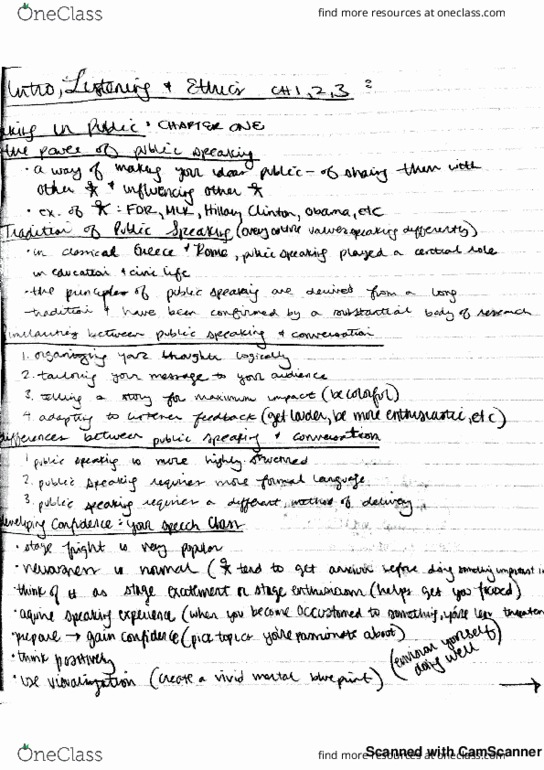 OneClass
find more resources at oneclass.com
Intro, Listening + Ethics CH 1, 2, 3
aking in Public • CHAPTER ONE
the power of public speaking
• a way of making your ideas public - of sharing them with
other + influencing other
• ex. of : FDR, MLK, Hillary Clinton, Obama, etc
Tradition of Public Speaking (everyone values speaking differently)
• in classical Greece + Rome, public speaking played a central role
in education + civic life
• the principles of public speaking are derived from a long
tradition + have been confirmed by a substantial body of research
imilarities between public speaking + conversation
1. organizing your thoughts logically
2. tailoring your message to your audience
3. telling a story for maximum impact (be colorful)
4. adapting to listener feedback (get louder, be more enthusiastic, etc)
differences between public speaking + conversation
1 public speaking is more highly structured
2. public speaking requires more formal language
3. public speaking requires a different method of delivery
eveloping Confidence: your speech class
• stage fright is very popular
• nervousness is normal ( tend to get anxious before doing something important in
• think of it as stage excitement or stage enthusiasm (helps get you focused)
• aquire speaking experience (when you become accustomed to something, you're less threaten
prepare → gain confidence (pick topics you're passionate about)
• think positively
• use visualization (create a vivid mental blueprint) (envision yourself doing well)
→
Scanned with CamScanner
OneClass
find more resources at oneclass.com